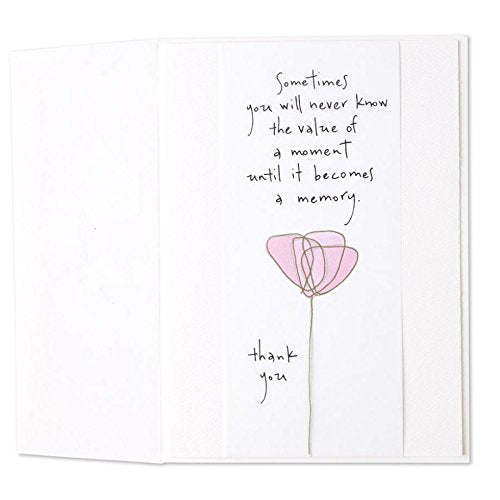 Sometimes
you will never know
the value of
a moment
until it becomes
a memory.
thank
you